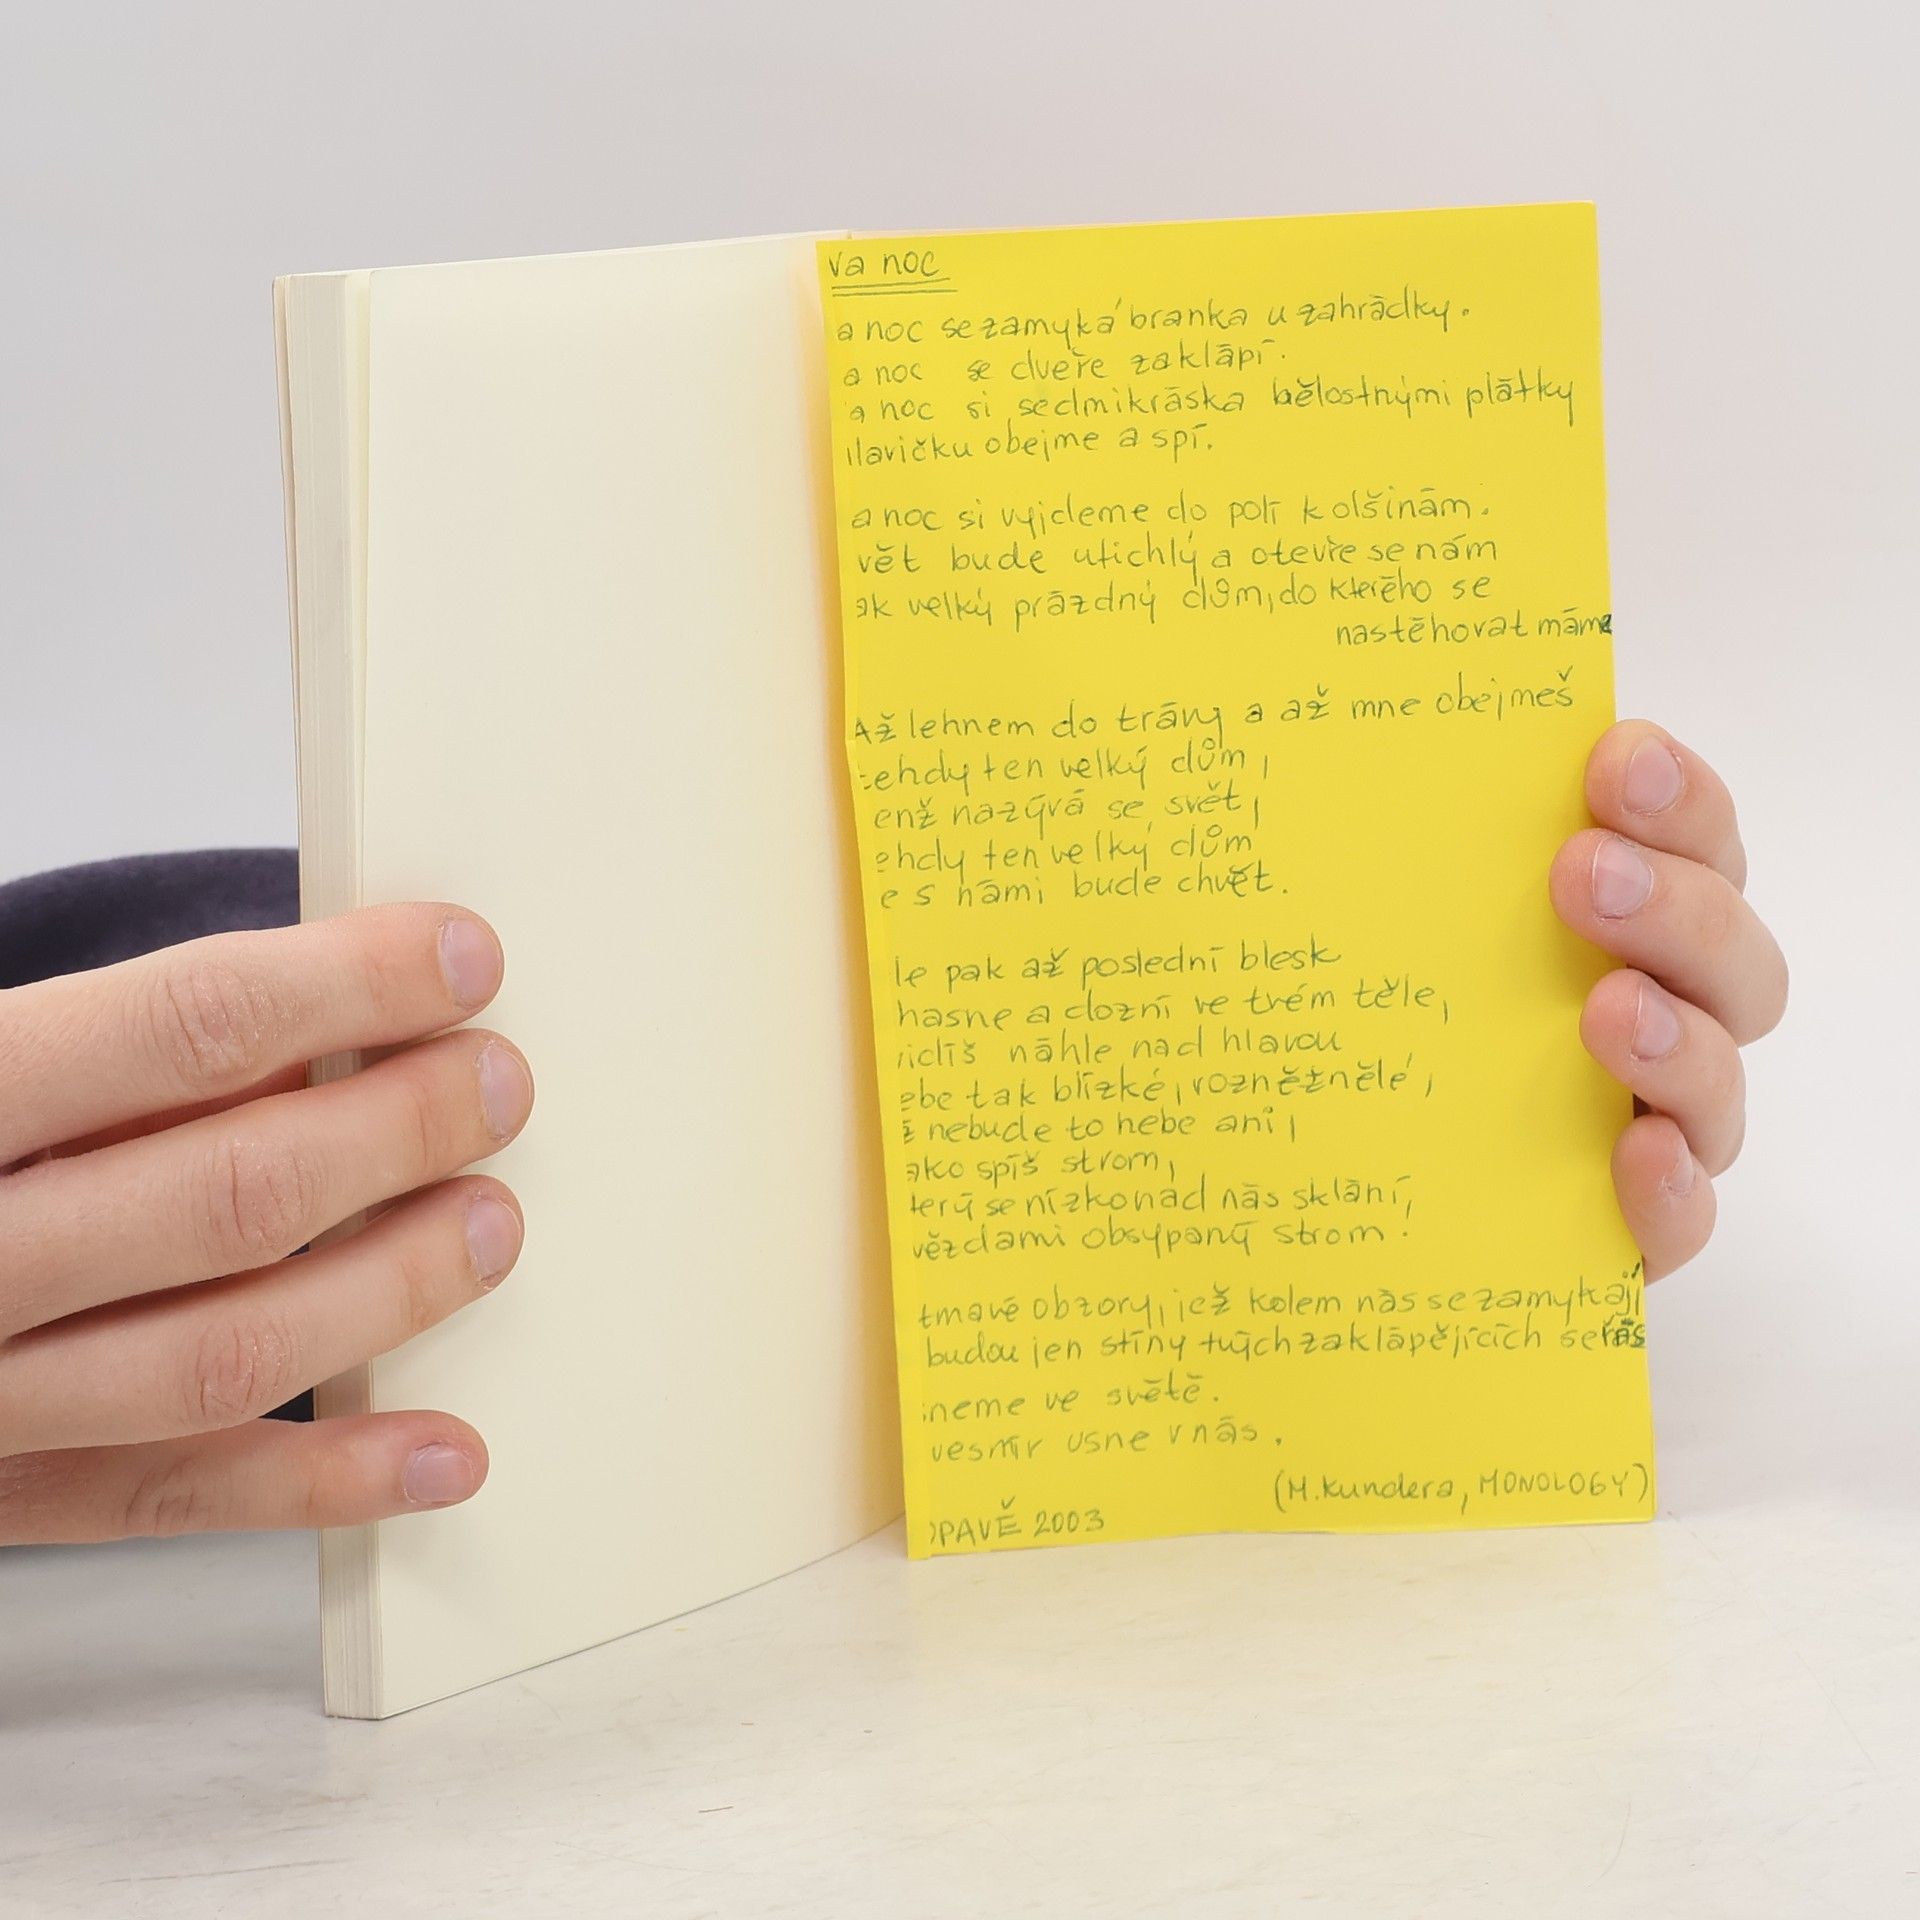 va noc
a noc se zamyká branka u zahrádky.
a noc se dveře zaklápí.
a noc si sedmikráska bělostnými plátky
lavičku obejme a spí.
a noc si vyjdeme do polí k olšinám.
vět bude utichlý a otevře se nám
ak velký prázdný dům, do kterého se
nastěhovat máme
Až lehnem do trávy a až mne obejmeš
tehdy ten velký dům,
enž nazývá se svět,
ehdy ten velký dům
e s námi bude chvět.
le pak až poslední blesk
hasne a dozní ve tvém těle,
vidíš náhle nad hlavou
ebe tak blízké, rozněžnělé,
ž nebude to nebe ani,
ako spíš strom,
terý se nízko nad nás sklání,
vězdami obsypaný strom.
tmavé obzory, jež kolem nás se zamykají
budou jen stíny tvých zaklápějících se řas
sneme ve světě.
vesmír usne v nás.
(M. Kundera, MONOLOGY)
OPAVĚ 2003